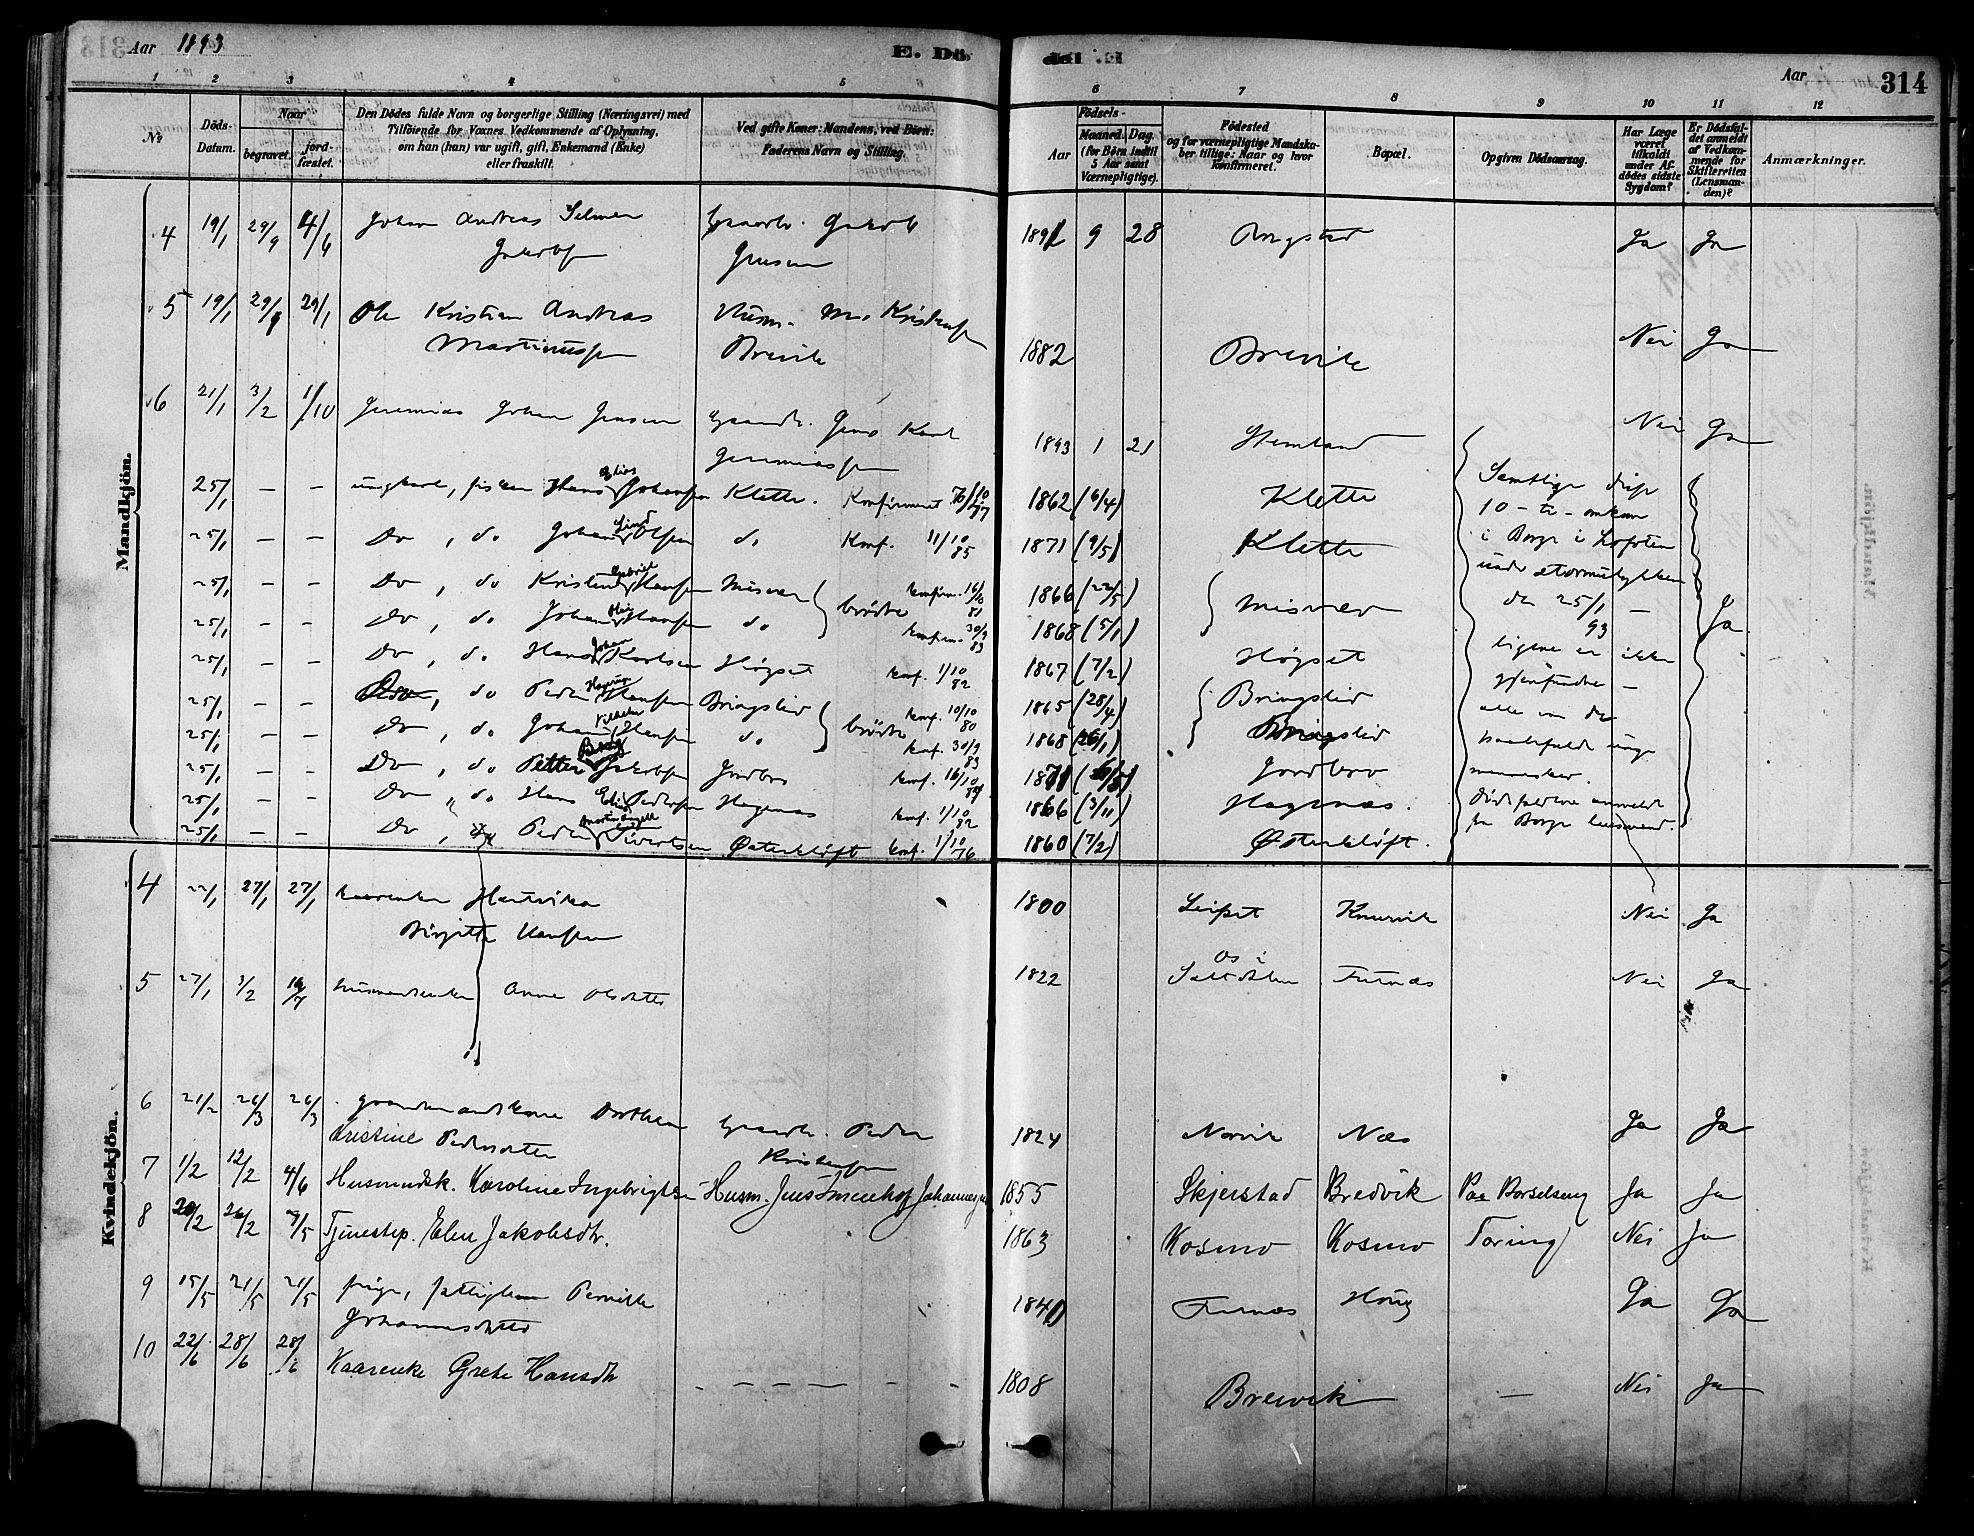 Aar 1893
E. Dö
Aar
314
1 2 3 4 5 6 7 8 9 10 11 12
No
Döds-Datum.
Naar
begravet.
jord-fæstet.
Den Dödes fulde Navn og borgerlige Stilling (Næringsvei) med
Tilföiende for Voxnes Vedkommende af Oplysning,
om han (hun) var ugift, gift, Enkemand (Enke)
eller fraskilt.
Ved gifte Koner: Mandens, ved Börn:
Faderens Navn og Stilling.
Födsels-
Aar
Maaned. Dag.
(for Börn indtil
5 Aar samt
Værnepligtige).
Födested
og for værnepligtige Mandska-
ber tillige: Naar og hvor
konfirmeret.
Bopæl.
Opgiven Dödsaarsag.
Har Læge
været
tilkaldt
under Af-
dödes sidste
Sygdom?
Er Dödsfal-
det anmeldt
af Vedkom-
mende for
Skifteretten
(Lensman-
den)?
Anmærkninger.
Mandkjön.
4 19/1 29/9 4/6 Johan Andreas Selmer Gaardb. Jakob 1892 9 28 Ja Ja
Jakobsen Jensen
5 19/1 29/1 29/1 Ole Kristian Andreas Husm. M. Kristensen Nei Ja
Martinussen Brevik 1882 Brevik
6 21/1 3/2 1/10 Jeremias Johan Jensen Gaardb. Jens Karl Nei Ja
Jeremiassen 1893 1 21
25/1 – – ungkarl, fisker Hans Elias Johansen Klette. Konfirmeret 7/10 77 1862 (6/4) Klette Samtlige disse
25/1 – – Do, do Johan Olsen do Konf. 11/10 85 1871 (9/5) Klette 10 – ti – omkom
i Borge i Lofoten
25/1 – – Do, do Kristian Gabriel Hansen Misvær konfirm. 16/10 81 1866 (22/5) Misvær under stormulykken
25/1 – – Do, do Johan Hansen do brödre konfirm. 30/9 83 1868 (5/1) den 25/1 93 – Ja
25/1 – – Do, do Hans Johan Karlsen Högset konf. 1/10 82 1867 (7/2) Högset ligene er ikke
25/1 – – Do, do Peder Hansen Bringslid konf. 10/10 80 1865 (28/4) Bringslid gjenfundne –
25/1 – – Do, do Johan Vilhelm Hansen do brödre konf. 30/9 83 1868 (26/1) Bringslid alle var de
haabefulde unge
25/1 – – Do, do Petter Jakobsen Jordbro konf. 16/10 1871 Jordbro mennesker.
25/1 – – Do, do Hans Elias Pedersen Hagenæs konf. 1/10 82 1866 (3/11) Hagenæs. Dödsfaldene anmeldt
25/1 – – Do, do Peder Martin Angell Sivertsen Østerklöft konf. 1/10 76 1860 (7/2) Østerklöft. fra Borge lensmand.
Kvindekjön.
4 22/1 27/1 27/1 kaarenke Hartvika 1800 Leifset Knarvik Nei Ja
Birgitte Hansen
5 27/1 3/2 16/7 husmandsenke Anne Olsdatter 1822 Os i Saltdalen Furnæs Nei Ja
6 21/2 26/3 26/3 gaardmandskone Dorthea Gaardb. Peder 1824 Næs Ja Ja
Kristine Pedersdatter Kristensen
7 1/2 12/2 4/6 Husmandsk. Karoline Ingebrigtsen Husm. Jens Smenhof Johannesen 1855 Skjerstad Bredvik Paa Barselseng Ja Ja
8 20/2 26/2 7/5 Tjenestep. Elen Jakobsdtr. 1863 Kosmo Kosmo Tæring Nei Ja
9 15/5 21/5 21/5 pige, fattiglem Pernille 1840 Furnæs Ja Ja
Johannesdatter
10 22/6 28/6 28/6 Kaarenke Grete Hansdtr – – – – 1808 Breivik – Nei Ja